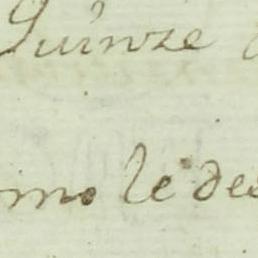 Quinze
mo le de